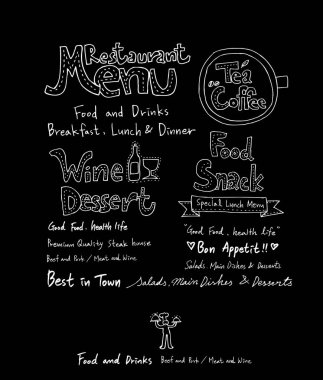 Restaurant
Menu
Food and Drinks
Breakfast, Lunch & Dinner
Tea
or
Coffee
Wine
Dessert
Good Food, health life
Premium Quality Steak house
Beef and Pork / Meat and Wine
Best in Town
Food
Snack
Special Lunch Menu
"Good Food, health life"
Bon Appetit!!
Salads, Main Dishes & Desserts
Salads, Main Dishes & Desserts
Food and Drinks Beef and Pork / Meat and Wine